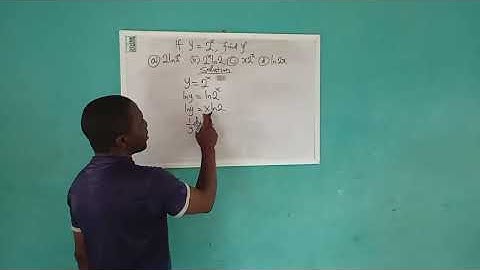 If y = 2^x, find y'
(a) 2lnx (b) 2^x ln2 (c) x2^x (d) ln2x
Solution
y = 2^x
lny = ln2^x
lny = xln2
1/y